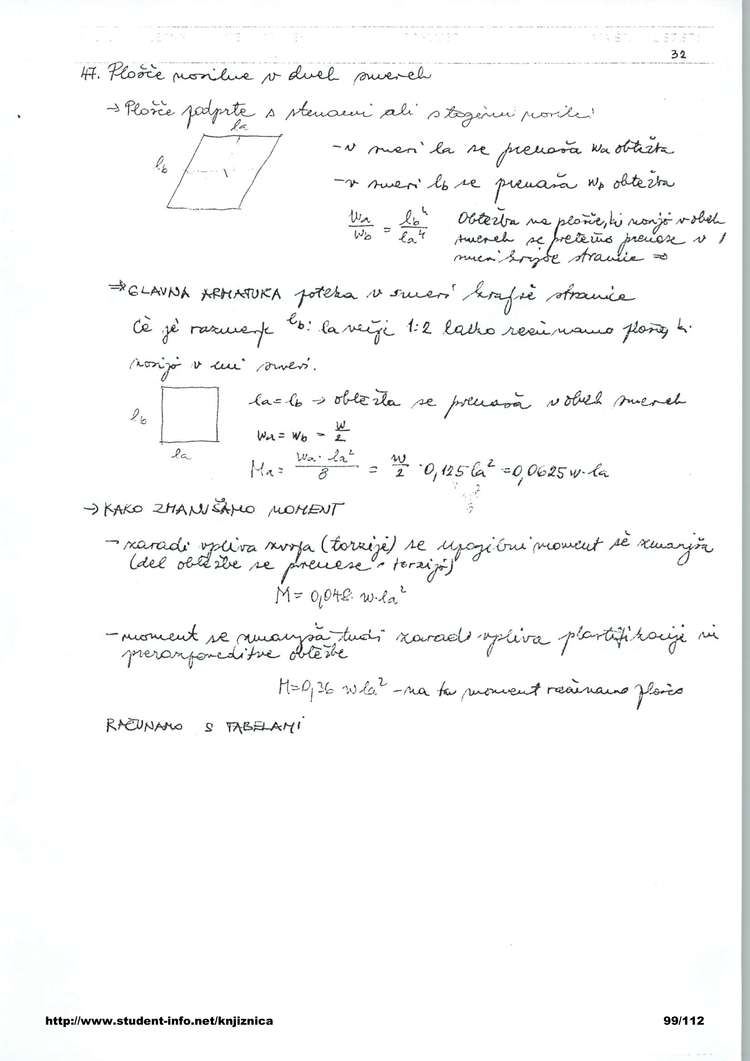 32
47. Plošče nosilne v dveh smereh
→ Plošče podprte s stenami ali s togimi nosilci
la
lb
- v smeri la se prenaša wa obtežba
- v smeri lb se prenaša wb obtežba
wa/wb = lb⁴/la⁴
Obtežba na plošče, ki nosijo v obeh
smereh se pretežno prenese v
smeri krajše stranice ⇒
⇒ GLAVNA ARMATURA poteka v smeri krajše stranice
Če je razmerje lb : la večje 1:2 lahko računamo plošče, ki
nosijo v eni smeri.
lb
la
la = lb → obtežba se prenaša v obeh smereh
wa = wb = w/2
Ma = wa · la²/8 = w/2 · 0,125 la² = 0,0625 w · la
→ KAKO ZMANJŠAMO MOMENT
- zaradi vpliva zvoja (torzije) se upogibni moment še zmanjša
(del obtežbe se prenese s torzijo)
M = 0,048 · w · la²
- moment se zmanjša tudi zaradi vpliva plastifikacije in
prerazporeditve obtežbe
M = 0,36 w la² - na ta moment računamo plošče
RAČUNAMO S TABELAMI
http://www.student-info.net/knjiznica
99/112